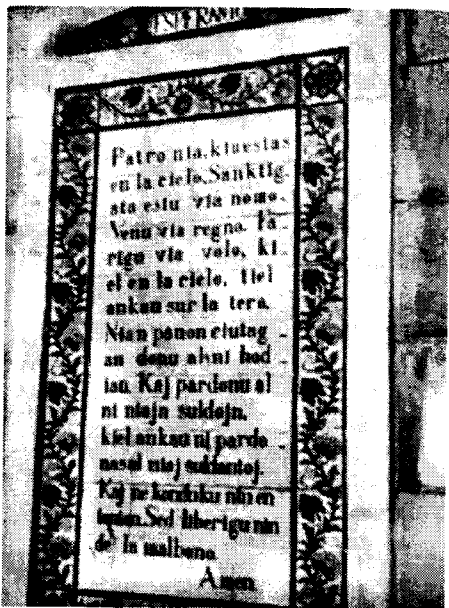 ESPERANTO
Patro nia, kiu estas
en la cielo, Sanktig-
ata estu via nomo.
Venu via regno. Fa-
rigu via volo, ki-
el en la cielo, tiel
ankau sur la tero.
Nian panon ciutag-
an donu al ni hod-
iau. Kaj pardonu al
ni niajn suldojn,
kiel ankau ni pardo-
nas al niaj suldantoj.
Kaj ne konduku nin en
Sed liberigu nin
de la malbono.
Amen